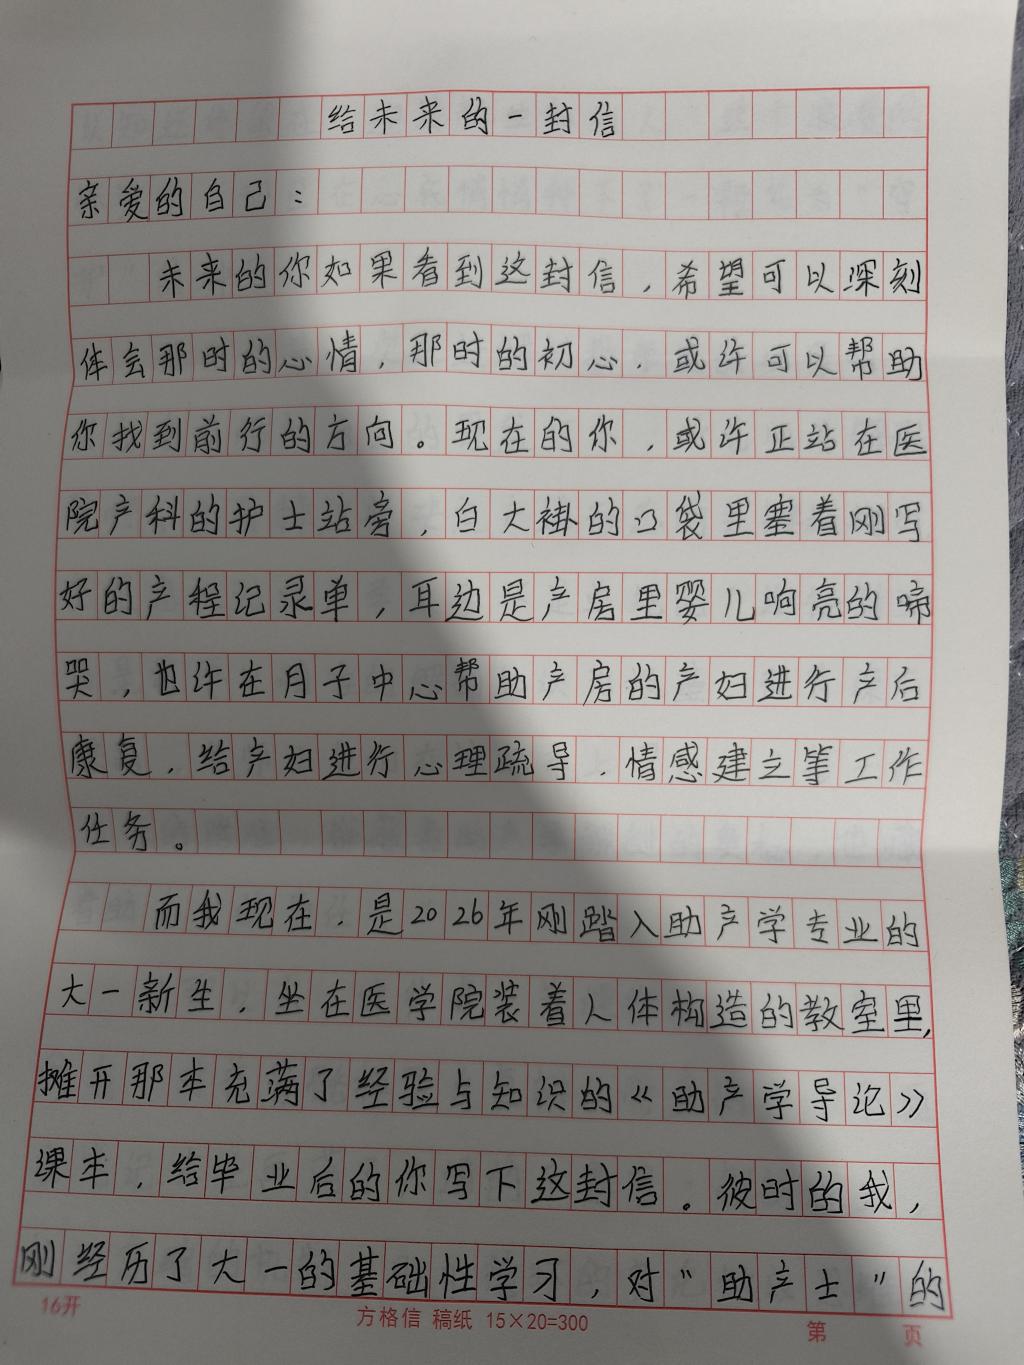 给未来的一封信
亲爱的自己：
未来的你如果看到这封信，希望可以深刻
体会那时的心情，那时的初心，或许可以帮助
你找到前行的方向。现在的你，或许正站在医
院产科的护士站旁，白大褂的口袋里塞着刚写
好的产程记录单，耳边是产房里婴儿响亮的啼
哭，也许在月子中心帮助产房的产妇进行产后
康复，给产妇进行心理疏导，情感建立等工作
任务。
而我现在，是2026年刚踏入助产学专业的
大一新生，坐在医学院装着人体构造的教室里，
摊开那本充满了经验与知识的《助产学导论》
课本，给毕业后的你写下这封信。彼时的我，
刚经历了大一的基础性学习，对“助产士”的
16开
方格信 稿纸 15×20=300
第 页